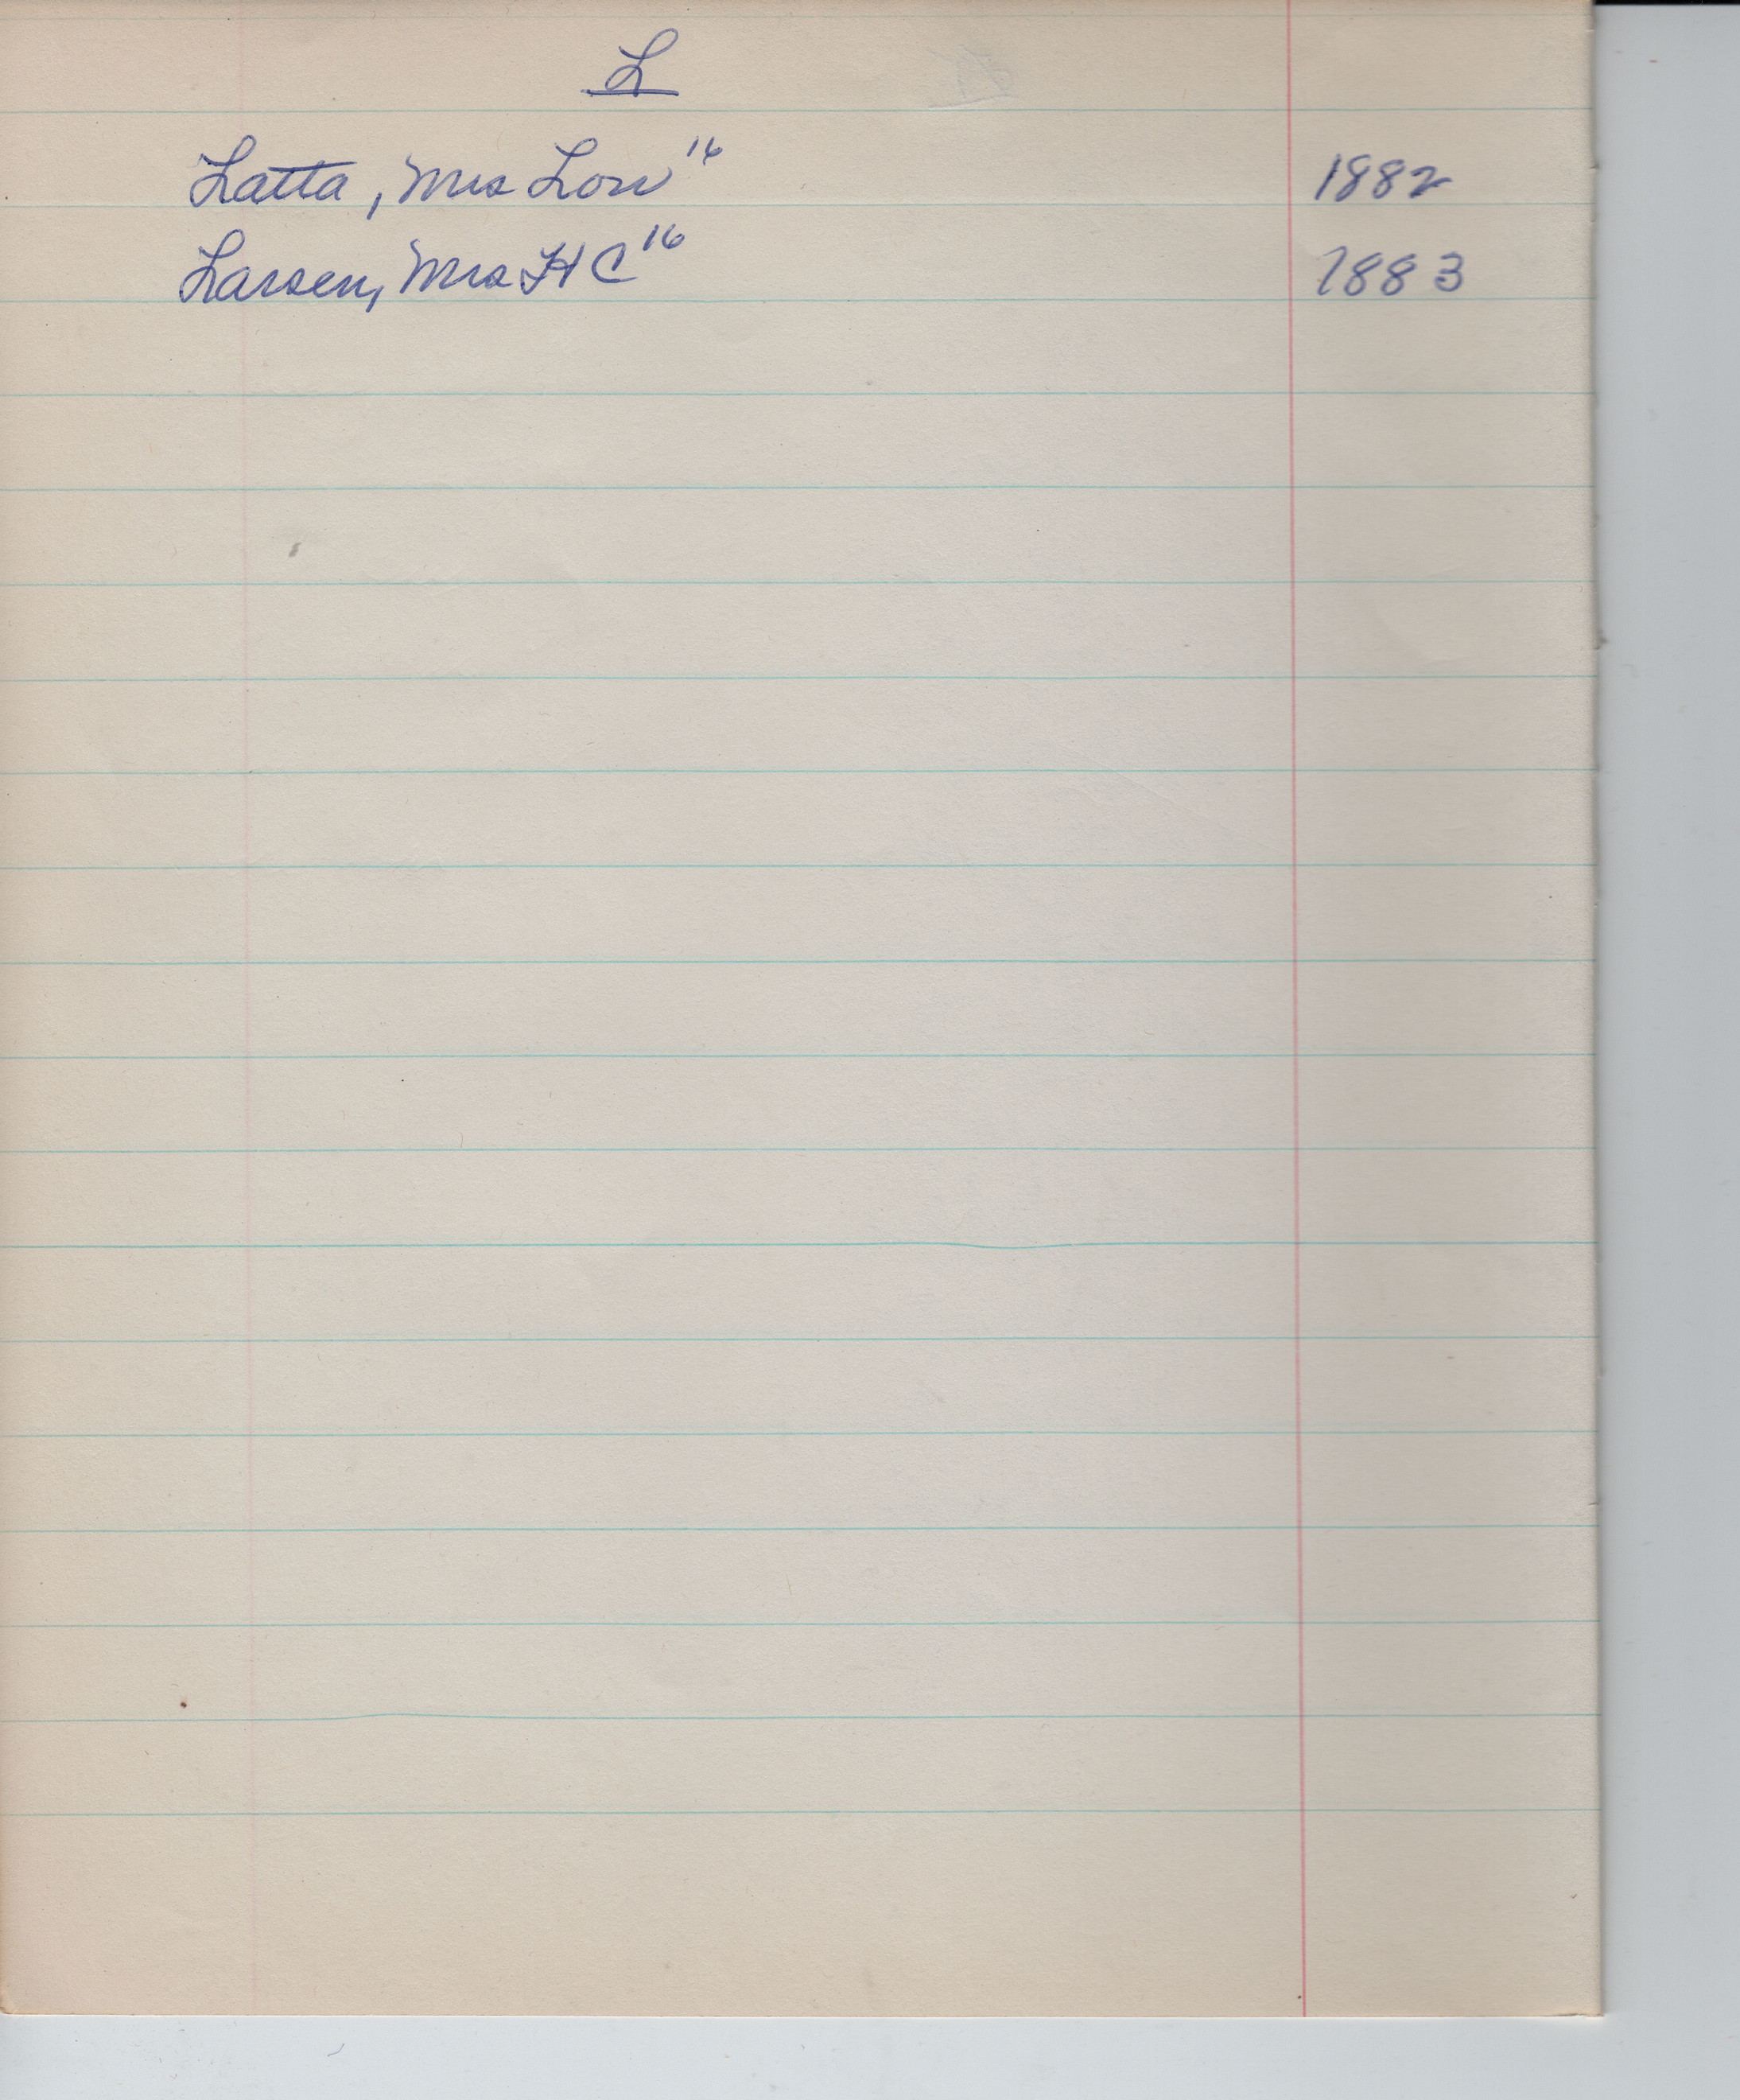 L
Latta, Mrs Lou 16 1882
Larsen, Mrs H C 16 1883